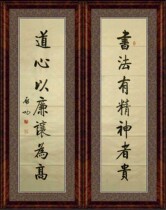 書法有精神者貴
道心以廉讓為高
啟功